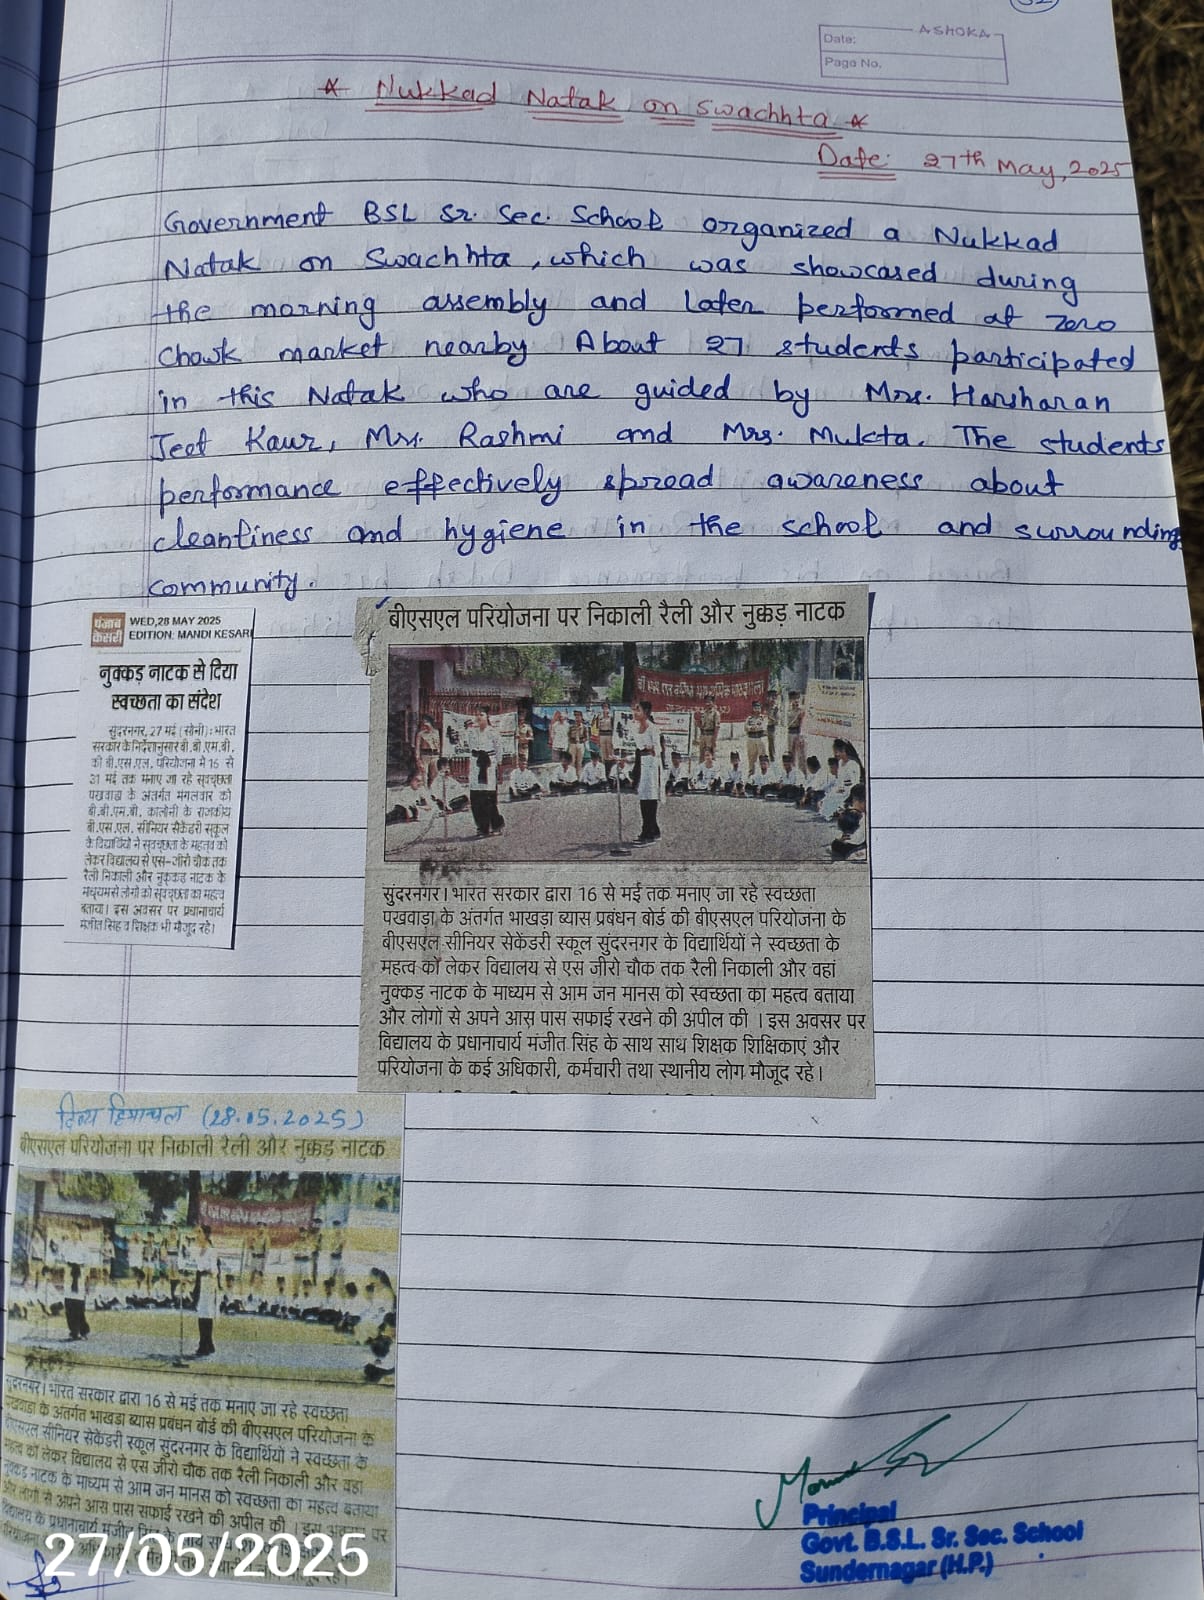 32
ASHOKA
Date:
Page No.
* Nukkad Natak on Swachhta *
Date: 27th May, 2025
Government BSL Sr. Sec. School organized a Nukkad
Natak on Swachhta, which was showcased during
the morning assembly and later performed at Zero
Chowk market nearby About 27 students participated
in this Natak who are guided by Mrs. Harsharan
Jeet Kaur, Mrs. Rashmi and Mrs. Mukta. The students
performance effectively spread awareness about
cleanliness and hygiene in the school and surrounding
community.
पंजाब केसरी
WED,28 MAY 2025
EDITION: MANDI KESARI
नुक्कड़ नाटक से दिया
स्वच्छता का संदेश
सुंदरनगर, 27 मई (सोनी): भारत
सरकार के निर्देशानुसार बी.बी.एम.बी.
की बी.एस.एल. परियोजना में 16 से
31 मई तक मनाए जा रहे स्वच्छता
पखवाड़ा के अंतर्गत मंगलवार को
बी.बी.एम.बी. कालोनी के राजकीय
बी.एस.एल. सीनियर सैकेंडरी स्कूल
के विद्यार्थियों ने स्वच्छता के महत्व को
लेकर विद्यालय से एस-जीरो चौक तक
रैली निकाली और नुक्कड़ नाटक के
माध्यम से लोगों को स्वच्छता का महत्व
बताया। इस अवसर पर प्रधानाचार्य
मंजीत सिंह व शिक्षक भी मौजूद रहे।
बीएसएल परियोजना पर निकाली रैली और नुक्कड़ नाटक
सुंदरनगर। भारत सरकार द्वारा 16 से मई तक मनाए जा रहे स्वच्छता
पखवाडा के अंतर्गत भाखड़ा ब्यास प्रबंधन बोर्ड की बीएसएल परियोजना के
बीएसएल सीनियर सेकेंडरी स्कूल सुंदरनगर के विद्यार्थियों ने स्वच्छता के
महत्व को लेकर विद्यालय से एस जीरो चौक तक रैली निकाली और वहां
नुक्कड़ नाटक के माध्यम से आम जन मानस को स्वच्छता का महत्व बताया
और लोगों से अपने आस पास सफाई रखने की अपील की । इस अवसर पर
विद्यालय के प्रधानाचार्य मंजीत सिंह के साथ साथ शिक्षक शिक्षिकाएं और
परियोजना के कई अधिकारी, कर्मचारी तथा स्थानीय लोग मौजूद रहे।
दिव्य हिमाचल (28.05.2025)
बीएसएल परियोजना पर निकाली रैली और नुक्कड़ नाटक
सुंदरनगर। भारत सरकार द्वारा 16 से मई तक मनाए जा रहे स्वच्छता
पखवाडा के अंतर्गत भाखड़ा ब्यास प्रबंधन बोर्ड की बीएसएल परियोजना के
बीएसएल सीनियर सेकेंडरी स्कूल सुंदरनगर के विद्यार्थियों ने स्वच्छता के
महत्व को लेकर विद्यालय से एस जीरो चौक तक रैली निकाली और वहां
नुक्कड़ नाटक के माध्यम से आम जन मानस को स्वच्छता का महत्व बताया
और लोगों से अपने आस पास सफाई रखने की अपील की । इस अवसर पर
विद्यालय के प्रधानाचार्य मंजीत
27/05/2025
Principal
Govt. B.S.L. Sr. Sec. School
Sundernagar (H.P.)